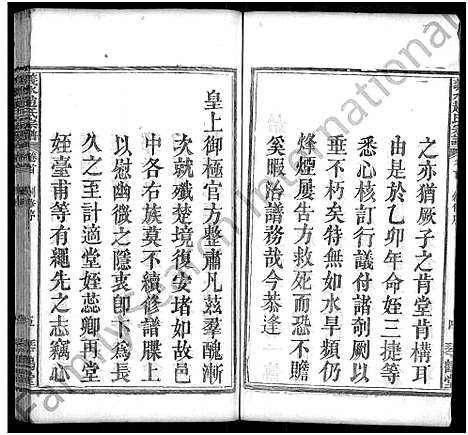 之亦猶厥子之肯堂肯構耳
由是於乙卯年命姪三捷等
悉心核訂行議付諸剞劂以
垂不朽矣特無如水旱頻仍
烽煙屢告方救死而恐不贍
奚暇治譜務哉今恭逢
皇上御極官方整肅凡茲羣醜漸
次就殲楚境復安堵如故邑
中各右族莫不續修譜牒上
以慰幽微之隱衷卽下為長
世久之計適堂姪蕊卿再堂
姪臺甫等有繩先之志竊心
琴鶴堂
Family Search International